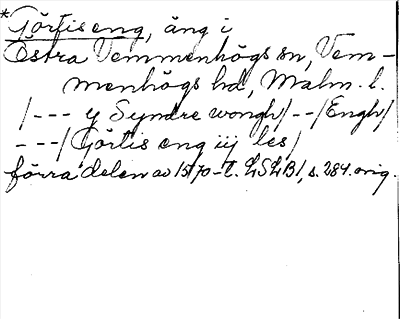 *Görtis eng, äng i
Östra Vemmenhögs sn, Vem-
menhögs hd, Malm. l.
/--- y Syndre wongh/--/Engh/
---/Görtis eng iij les/
förra delen av 1570-t. LSLB1, s. 284. orig.